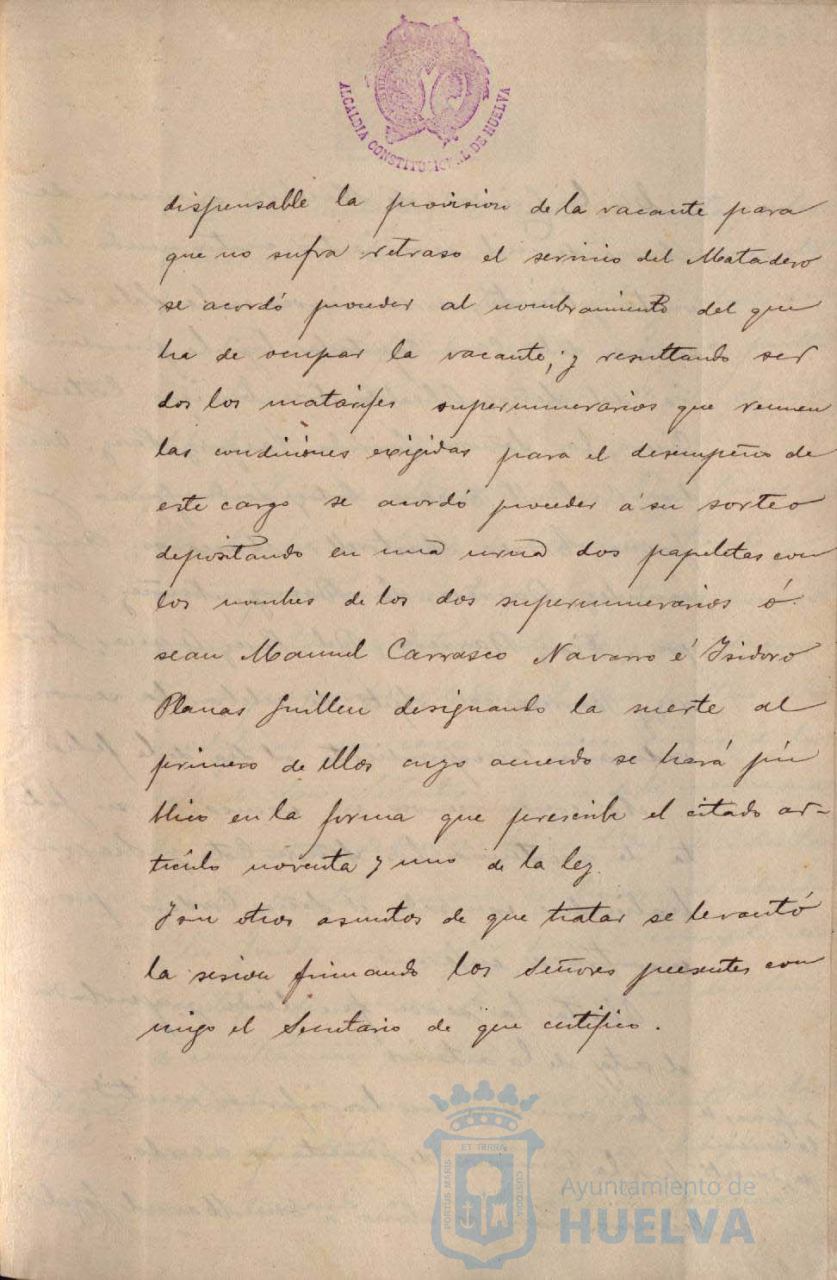 ALCALDIA CONSTITUCIONAL DE HUELVA
dispensable la provision de la vacante para
que no sufra retraso el servicio del Matadero
se acordó proceder al nombramiento del que
ha de ocupar la vacante; y resultando ser
dos los matarifes supernumerarios que reunen
las condiciones exigidas para el desempeño de
este cargo se acordó proceder á su sorteo
depositando en una urna dos papeletas con
los nombres de los dos supernumerarios ó
sean Manuel Carrasco Navarro é Isidoro
Planas Guillen designando la suerte al
primero de ellos cuyo acuerdo se hará pú
blico en la forma que prescribe el citado ar-
ticulo noventa y uno de la ley.
Y sin otros asuntos de que tratar se levantó
la sesion firmando los Señores presentes con
migo el Secretario de que certifico.
ET TERRÆ
PORTUS MARIS
CUSTODIA
Ayuntamiento de
HUELVA